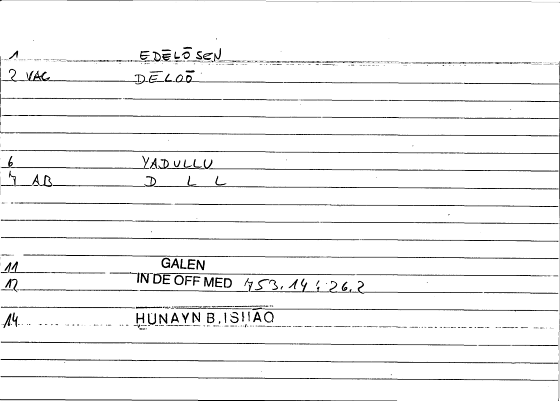 1 EDĒLŌSEN
2 VAC DĒLOŌ
6 YADULLU
7 AB D L L
11 GALEN
12 IN DE OFF MED 753.14 : 26.2
14 HUNAYN B. ISHĀQ